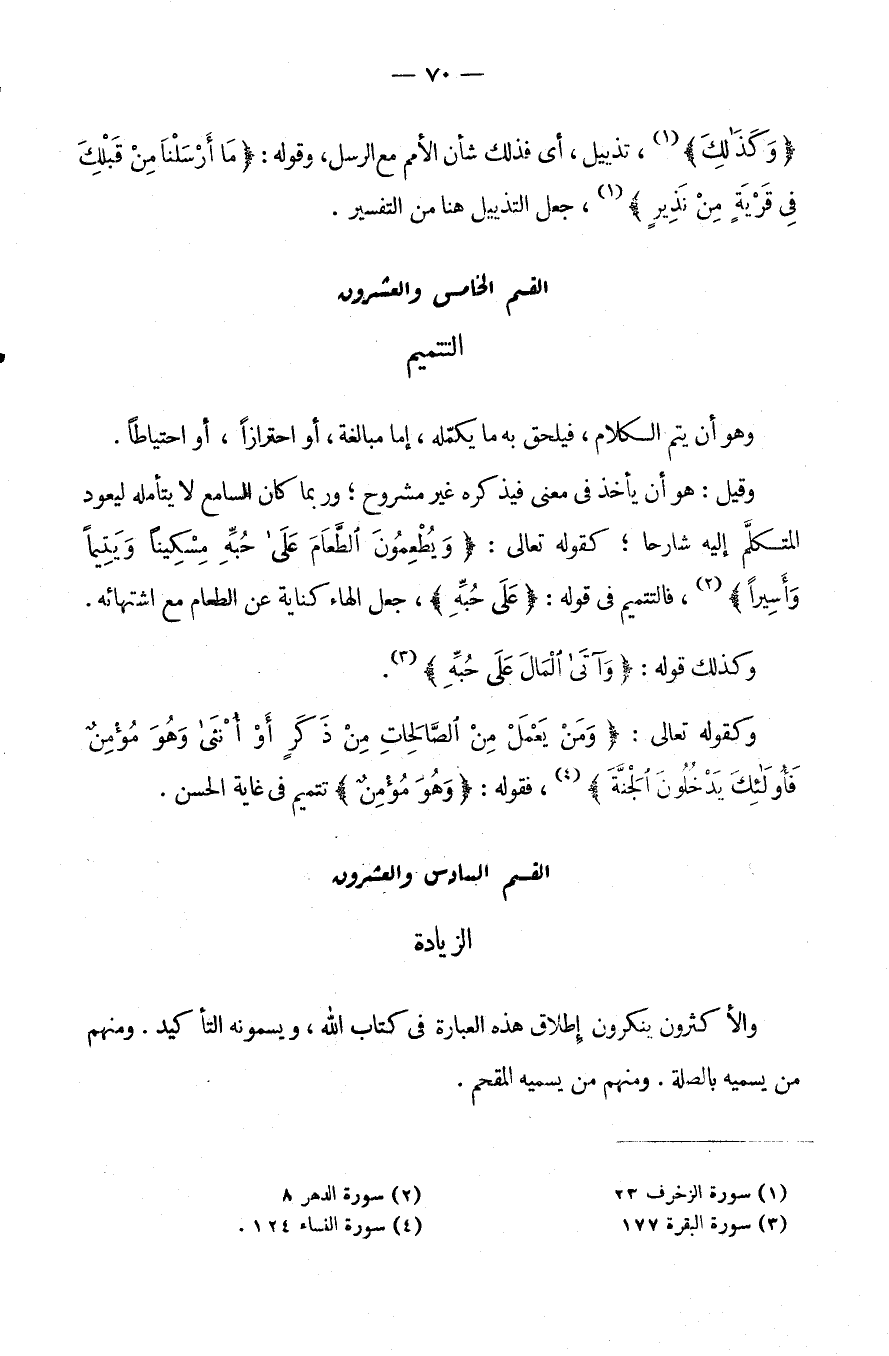 — ٧٠ —
﴿ وَكَذَٰلِكَ ﴾ (١) ، تذييل ، أى فذلك شأن الأمم مع الرسل، وقوله : ﴿ مَا أَرْسَلْنَا مِنْ قَبْلِكَ
فِي قَرْيَةٍ مِنْ نَذِيرٍ ﴾ (١) ، جعل التذييل هنا من التفسير .
القسم الخامس والعشرون
التتميم
وهو أن يتم الكلام ، فيلحق به ما يكمّله ، إما مبالغة ، أو احترازاً ، أو احتياطاً .
وقيل : هو أن يأخذ فى معنى فيذكره غير مشروح ؛ وربما كان السامع لا يتأمله ليعود
المتكلَّم إليه شارحا ؛ كقوله تعالى : ﴿ وَيُطْعِمُونَ ٱلطَّعَامَ عَلَىٰ حُبِّهِ مِسْكِيناً وَيَتِيماً
وَأَسِيراً ﴾ (٢) ، فالتتميم فى قوله : ﴿ عَلَى حُبِّهِ ﴾ ، جعل الهاء كناية عن الطعام مع اشتهائه .
وكذلك قوله : ﴿ وَآتَىٰ ٱلْمَالَ عَلَى حُبِّهِ ﴾ (٣) .
وكقوله تعالى : ﴿ وَمَنْ يَعْمَلْ مِنْ ٱلصَّالِحَاتِ مِنْ ذَكَرٍ أَوْ أُنْثَىٰ وَهُوَ مُؤْمِنٌ
فَأُولَٰئِكَ يَدْخُلُونَ ٱلْجَنَّةَ ﴾ (٤) ، فقوله : ﴿ وَهُوَ مُؤْمِنٌ ﴾ تتميم فى غاية الحسن .
القسم السادس والعشرون
الزيادة
والأكثرون ينكرون إطلاق هذه العبارة فى كتاب الله ، ويسمونه التأكيد . ومنهم
من يسميه بالصلة . ومنهم من يسميه المقحم .
(١) سورة الزخرف ٢٣ (٢) سورة الدهر ٨
(٣) سورة البقرة ١٧٧ (٤) سورة النساء ١٢٤ .